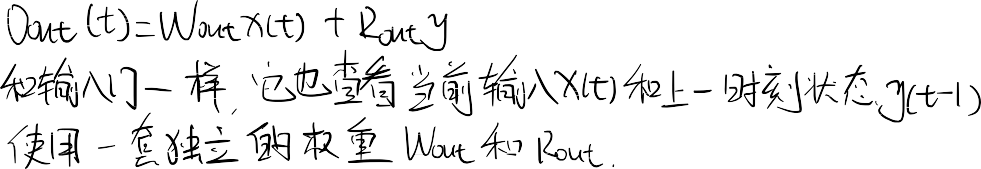 Oout(t)=Wout x(t) + Rout y
和输入门一样,它也查看当前输入x(t)和上一时刻状态y(t-1)
使用一套独立的权重 Wout 和 Rout.